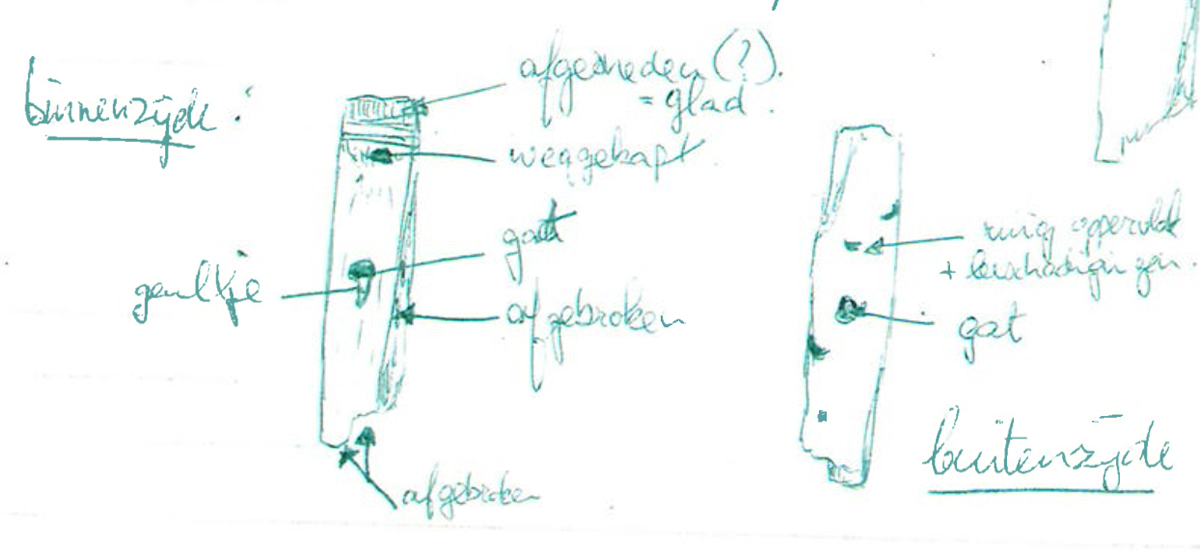 binnenzijde :
afgesneden (?).
= glad.
weggekapt.
gat
geultje
afgebroken
afgebroken
ruig oppervlak
+ beschadigingen.
gat
buitenzijde